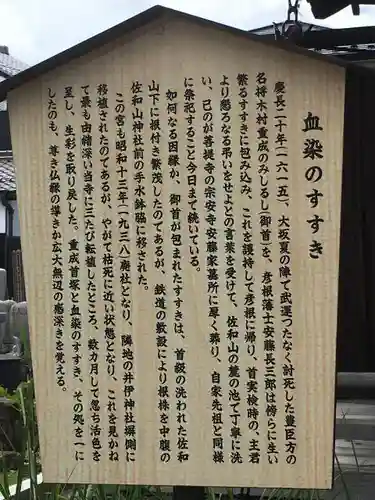 血染のすすき
慶長二十年(一六一五)、大坂夏の陣で武運つたなく討死した豊臣方の
名将木村重成のみしるし(御首)を、彦根藩士安藤長三郎は傍らに生い
繁るすすきに包み込み、これを護持して彦根に帰り、首実検時の、主君
より懇ろなる弔いをせよとの言葉を受けて、佐和山の麓の池で丁寧に洗
い、己のが菩提寺の宗安寺安藤家墓所に厚く葬り、自家先祖と同様
に祭祀すること今日まで続いている。
如何なる因縁か、御首が包まれたすすきは、首級の洗われた佐和
山下に根付き繁茂したのであるが、鉄道の敷設により根株を中腹の
佐和山神社前の手水鉢脇に移された。
この宮も昭和十三年(一九三八)廃社となり、隣地の井伊神社塀側に
移植されたのであるが、やがて枯死に近い状態となり、これを見かね
て最も由緒深い当寺に三たび転植したところ、数カ月して忽ち活色を
呈し、生彩を取り戻した。重成首塚と血染のすすき、その処を一に
したのも、尊き仏縁の導きか広大無辺の慈深きを覚える。